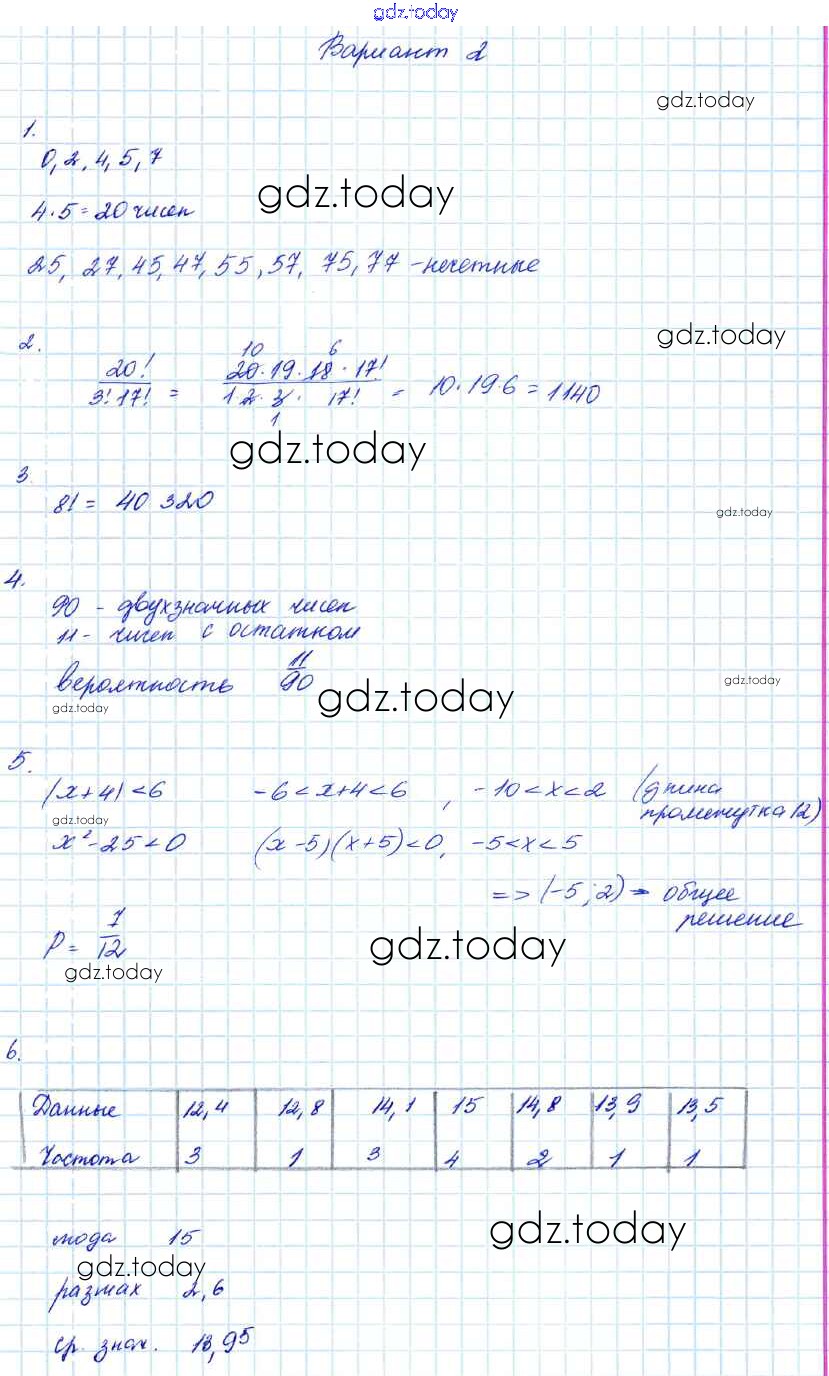 gdz.today
Вариант 2
gdz.today
1.
0, 2, 4, 5, 7
gdz.today
4·5=20 чисел
25, 27, 45, 47, 55, 57, 75, 77 - нечетные
gdz.today
2.
20!/3!17! = 20·19·18·17!/1·2·3·17! = 10·19·6 = 1140
10 6
1
gdz.today
3.
8! = 40 320
gdz.today
4.
90 - двухзначных чисел
11 - чисел с остатком
вероятность 11/90
gdz.today
gdz.today
gdz.today
5.
|x+4|<6 -6<x+4<6, -10<x<2 (длина
промежутка 12)
gdz.today
x²-25<0 (x-5)(x+5)<0, -5<x<5
=> (-5;2) - общее
решение
P = 7/12
gdz.today
gdz.today
6.
Данные 12,4 12,8 14,1 15 14,8 13,9 13,5
Частота 3 1 3 4 2 1 1
мода 15
gdz.today
gdz.today
размах 2,6
ср. знач. 13,95